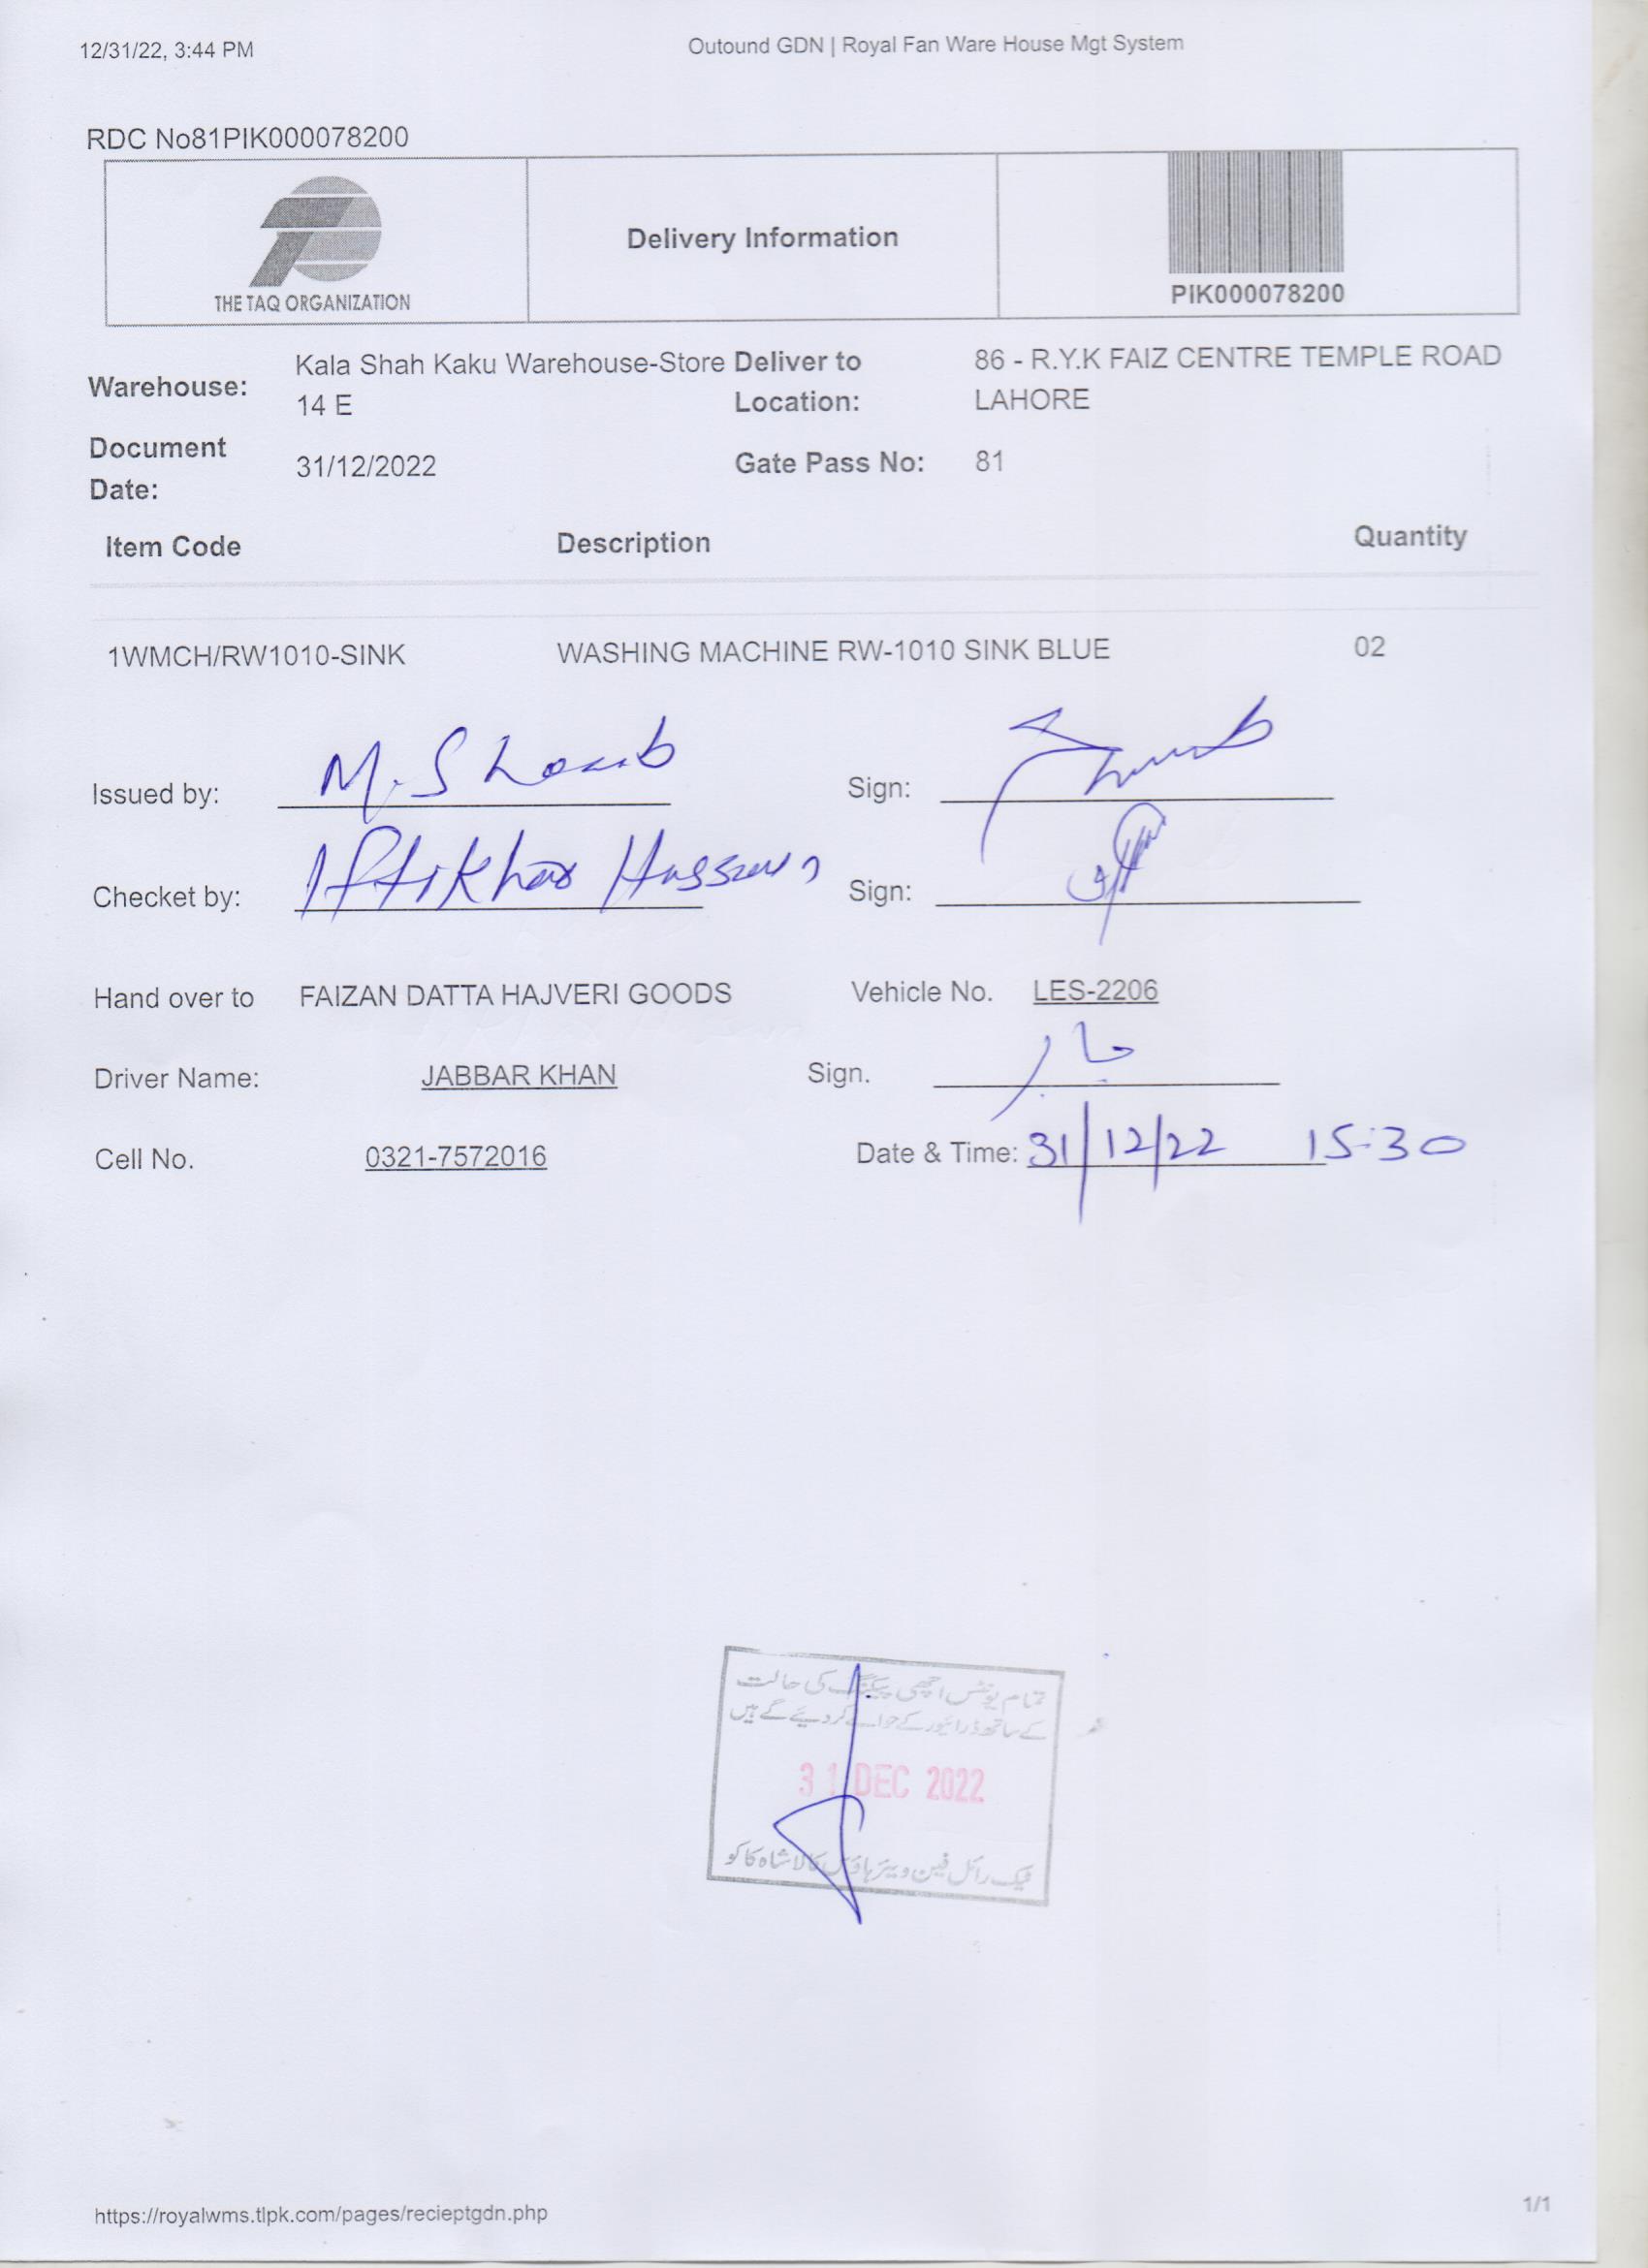 12/31/22, 3:44 PM Outound GDN | Royal Fan Ware House Mgt System
RDC No81PIK000078200
THE TAQ ORGANIZATION
Delivery Information
PIK000078200
Warehouse: Kala Shah Kaku Warehouse-Store 14 E
Deliver to Location: 86 - R.Y.K FAIZ CENTRE TEMPLE ROAD LAHORE
Document Date: 31/12/2022
Gate Pass No: 81
Item Code Description Quantity
1WMCH/RW1010-SINK WASHING MACHINE RW-1010 SINK BLUE 02
Issued by: M. Shoaib Sign:
Checket by: Iftikhar Hussain Sign:
Hand over to FAIZAN DATTA HAJVERI GOODS Vehicle No. LES-2206
Driver Name: JABBAR KHAN Sign. جابر
Cell No. 0321-7572016 Date & Time: 31/12/22 15:30
تمام یونٹس اچھی پیکنگ کی حالت
کے ساتھ ڈرائیور کے حوالے کر دیئے گے ہیں
31 DEC 2022
ٹیک رائل فین ویئر ہاؤس کالا شاہ کاکو
https://royalwms.tlpk.com/pages/recieptgdn.php 1/1